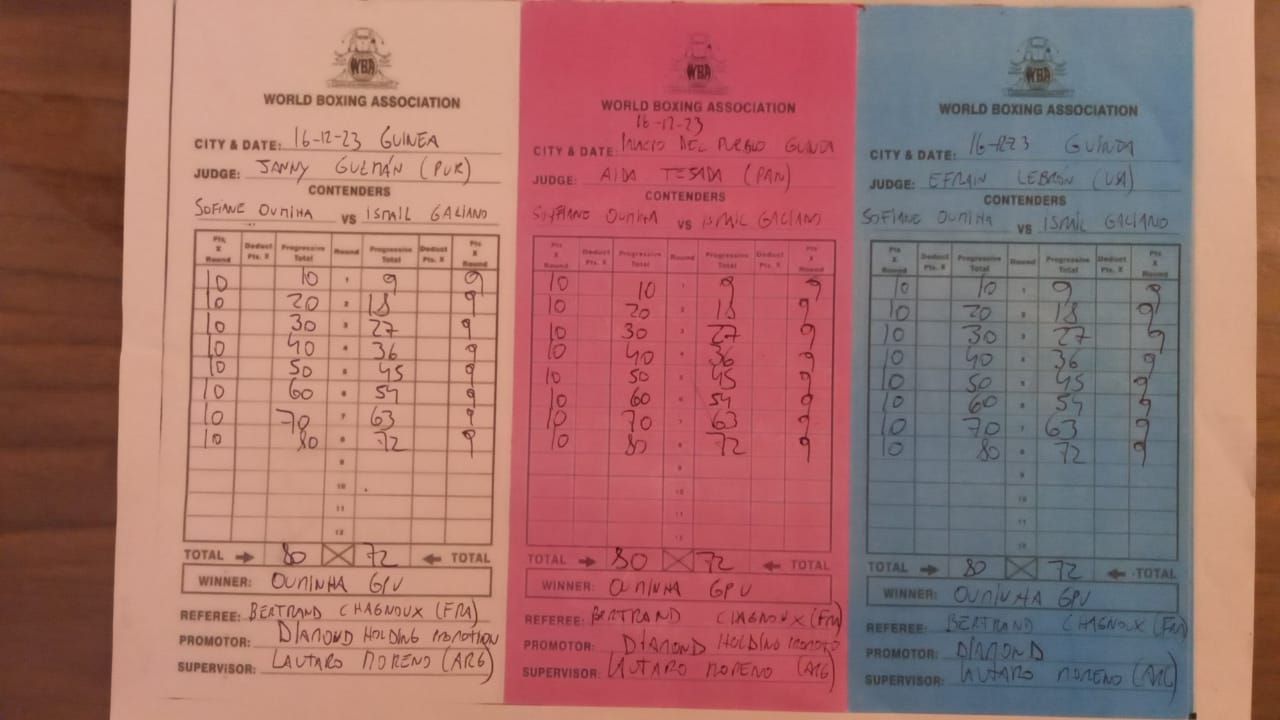 WBA
WORLD BOXING ASSOCIATION
CITY & DATE: 16-12-23 GUINEA
JUDGE: JANNY GUZMÁN (PUR)
CONTENDERS
SOFIANE OUMIHA VS ISMAIL GALIANO
Pts. X Round Deduct Pts. X Progressive Total Round Progressive Total Deduct Pts. X Pts X Round
10 10 1 9 9
10 20 2 18 9
10 30 3 27 9
10 40 4 36 9
10 50 5 45 9
10 60 6 54 9
10 70 7 63 9
10 80 8 72 9
9
10
11
12
TOTAL 80 72 TOTAL
WINNER: OUMINHA GPU
REFEREE: BERTRAND CHAGNOUX (FRA)
PROMOTOR: DIAMOND HOLDING PROMOTION
SUPERVISOR: LAUTARO MORENO (ARG)
WBA
WORLD BOXING ASSOCIATION
16-12-23
CITY & DATE: PALACIO DEL PUEBLO GUINEA
JUDGE: AIDA TESADA (PAN)
CONTENDERS
SOFIANE OUMIHA VS ISMAIL GALIANO
Pts X Round Deduct Pts. X Progressive Total Round Progressive Total Deduct Pts. X Pts X Round
10 10 1 9 9
10 20 2 18 9
10 30 3 27 9
10 40 4 36 9
10 50 5 45 9
10 60 6 54 9
10 70 7 63 9
10 80 8 72 9
9
10
11
12
TOTAL 80 72 TOTAL
WINNER: OUMINHA GPU
REFEREE: BERTRAND CHAGNOUX (FRA)
PROMOTOR: DIAMOND HOLDING PROMOTO
SUPERVISOR: LAUTARO MORENO (ARG)
WBA
WORLD BOXING ASSOCIATION
CITY & DATE: 16-1223 GUINEA
JUDGE: EFRAIN LEBRÓN (USA)
CONTENDERS
SOFIANE OUMIHA VS ISMAIL GALIANO
Pts X Round Deduct Pts. X Progressive Total Round Progressive Total Deduct Pts. X Pts X Round
10 10 1 9 9
10 20 2 18 9
10 30 3 27 9
10 40 4 36 9
10 50 5 45 9
10 60 6 54 9
10 70 7 63 9
10 80 8 72 9
9
10
11
12
TOTAL 80 72 TOTAL
WINNER: OUMINHA GPU
REFEREE: BERTRAND CHAGNOUX (FRA)
PROMOTOR: DIAMOND
SUPERVISOR: LAUTARO MORENO (ARG)